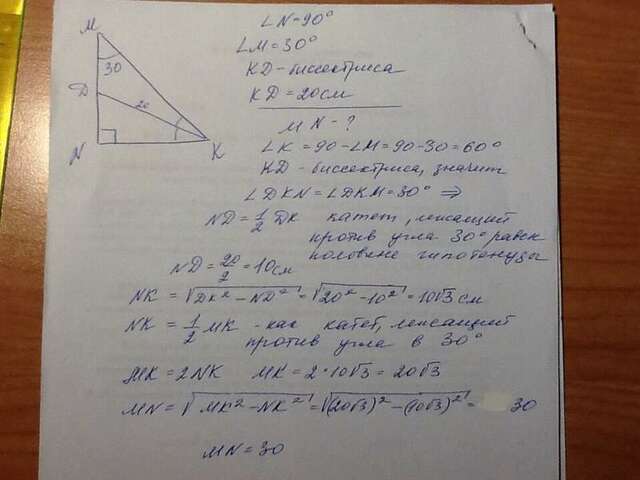 M
30
D
20
N
K
∠N=90°
∠M=30°
KD-биссектриса
KD=20см
MN-?
∠K=90-∠M=90-30=60°
KD-биссектриса, значит
∠DKN=∠DKM=30° ⇒
ND=1/2 DK катет, лежащий
против угла 30° равен
половине гипотенузы
ND=20/2=10см
NK=√(DK²-ND²)=√(20²-10²)=10√3 см
NK=1/2 MK - как катет, лежащий
против угла в 30°
MK=2NK MK=2·10√3=20√3
MN=√(MK²-NK²)=√((20√3)²-(10√3)²)= 30
MN=30